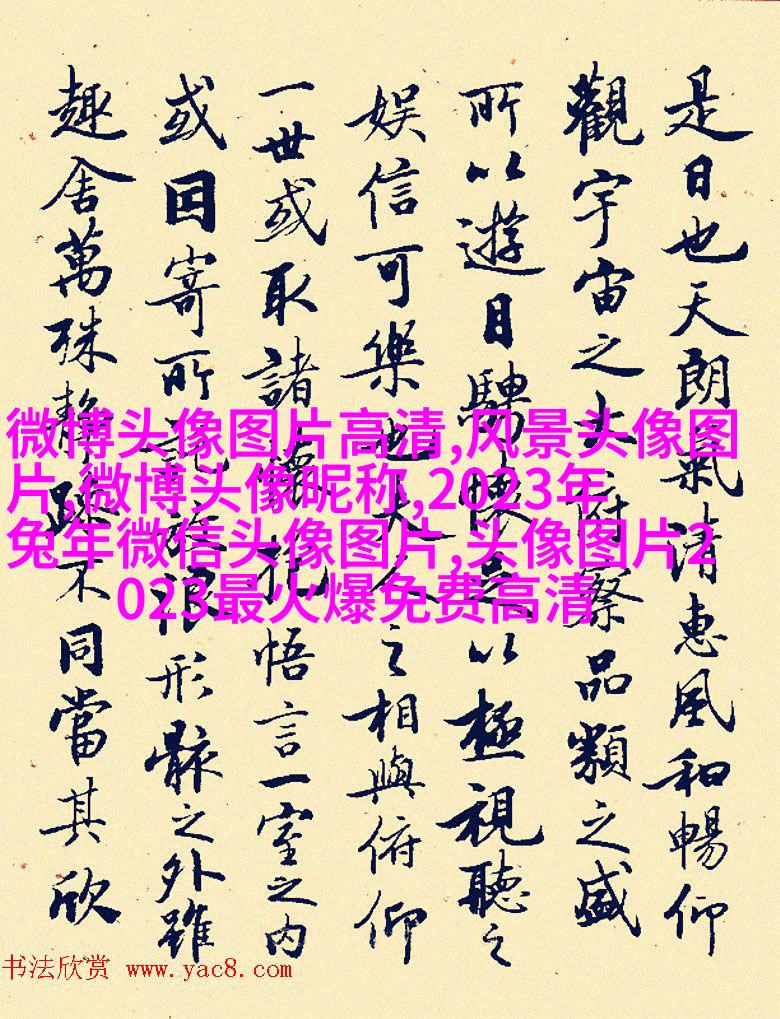 是日也天朗氣清惠風和暢仰
觀宇宙之大俯察品類之盛
所以遊目騁懷足以極視聽之
娛信可樂也夫人之相與俯仰
一世或取諸懷抱悟言一室之内
或因寄所託放浪形骸之外雖
趣舍萬殊靜躁不同當其欣
微博头像图片高清,风景头像图
片,微博头像昵称,2023年
兔年微信头像图片,头像图片2
023最火爆免费高清
书法欣赏 www.yac8.com